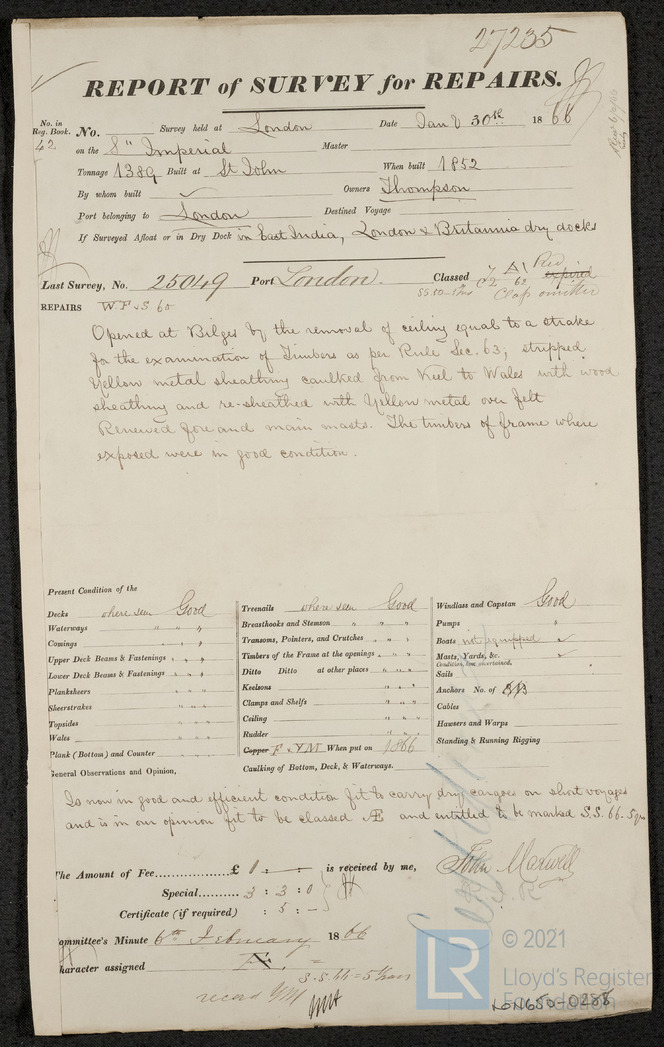 27235
REPORT of SURVEY for REPAIRS.
No. in Reg. Book. No. Survey held at London Date Jany 30th 1866
42 on the Sp Imperial Master
Tonnage 1389 Built at St John When built 1852
By whom built ✓ Owners Thompson
Port belonging to London Destined Voyage
If Surveyed Afloat or in Dry Dock in East India, London & Britannia dry docks
Last Survey, No. 25049 Port London. Classed A1 Red expired
62 Class omitted
REPAIRS
Opened at Bilges by the removal of ceiling equal to a strake
for the examination of Timbers as per Rule Sec. 63; stripped
Yellow metal sheathing caulked from Keel to Wales with wood
sheathing and re-sheathed with Yellow metal over felt
Renewed fore and main masts. The timbers of frame where
exposed were in good condition.
Present Condition of the
Decks where seen Good
Waterways " " "
Comings " " "
Upper Deck Beams & Fastenings " " "
Lower Deck Beams & Fastenings " " "
Planksheers " " "
Sheerstrakes " " "
Topsides " " "
Wales " " "
Plank (Bottom) and Counter " " "
Treenails where seen Good
Breasthooks and Stemson " " "
Transoms, Pointers, and Crutches " " "
Timbers of the Frame at the openings " " "
Ditto Ditto at other places " " "
Keelsons " " "
Clamps and Shelfs " " "
Ceiling " " "
Rudder " " "
Copper F YM When put on 1866
Caulking of Bottom, Deck, & Waterways.
Windlass and Capstan Good
Pumps "
Boats not equipped ✓
Masts, Yards, &c. ✓
Condition, how ascertained.
Sails
Anchors No. of
Cables
Hawsers and Warps
Standing & Running Rigging
General Observations and Opinion,
Is now in good and efficient condition fit to carry dry cargoes on short voyages
and is in our opinion fit to be classed Æ and entitled to be marked S.S. 66. 5 yrs
The Amount of Fee £ is received by me,
Special 3 : 3 : 0
Certificate (if required) : 5 : -
John Maxwell
Committee's Minute 6th February 1866
Character assigned Æ
S.S. 66 = 5 Years
record YM
© 2021
LR
Lloyd's Register
Foundation
LON650-0288